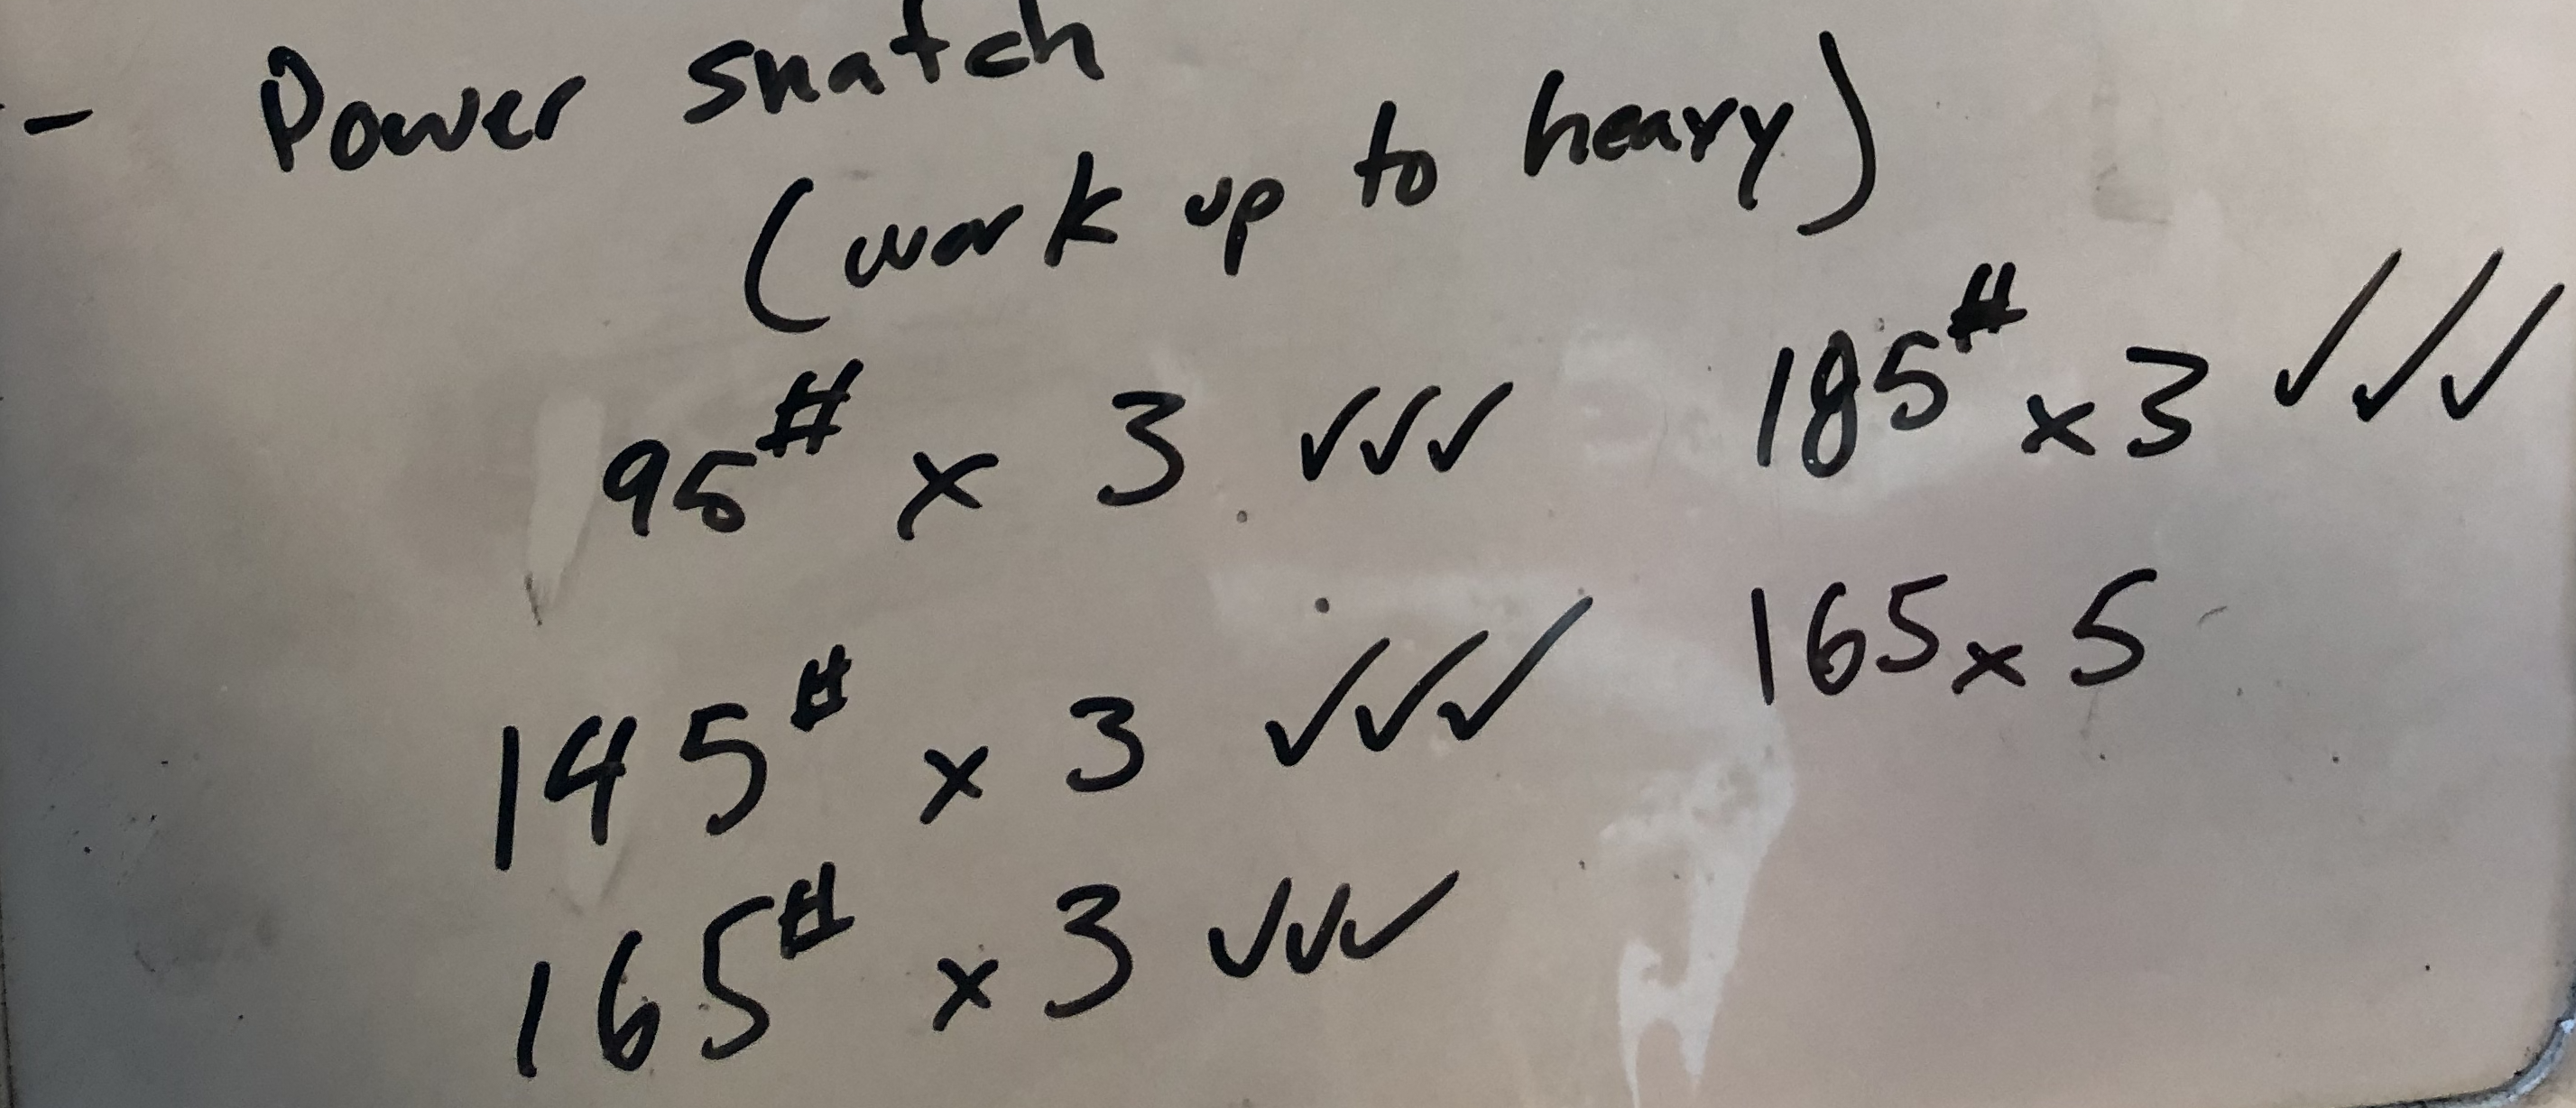 - Power snatch
(work up to heavy)
95# x 3 ✓✓✓
145# x 3 ✓✓✓
165# x 3 ✓✓✓
185# x 3 ✓✓✓
165 x 5